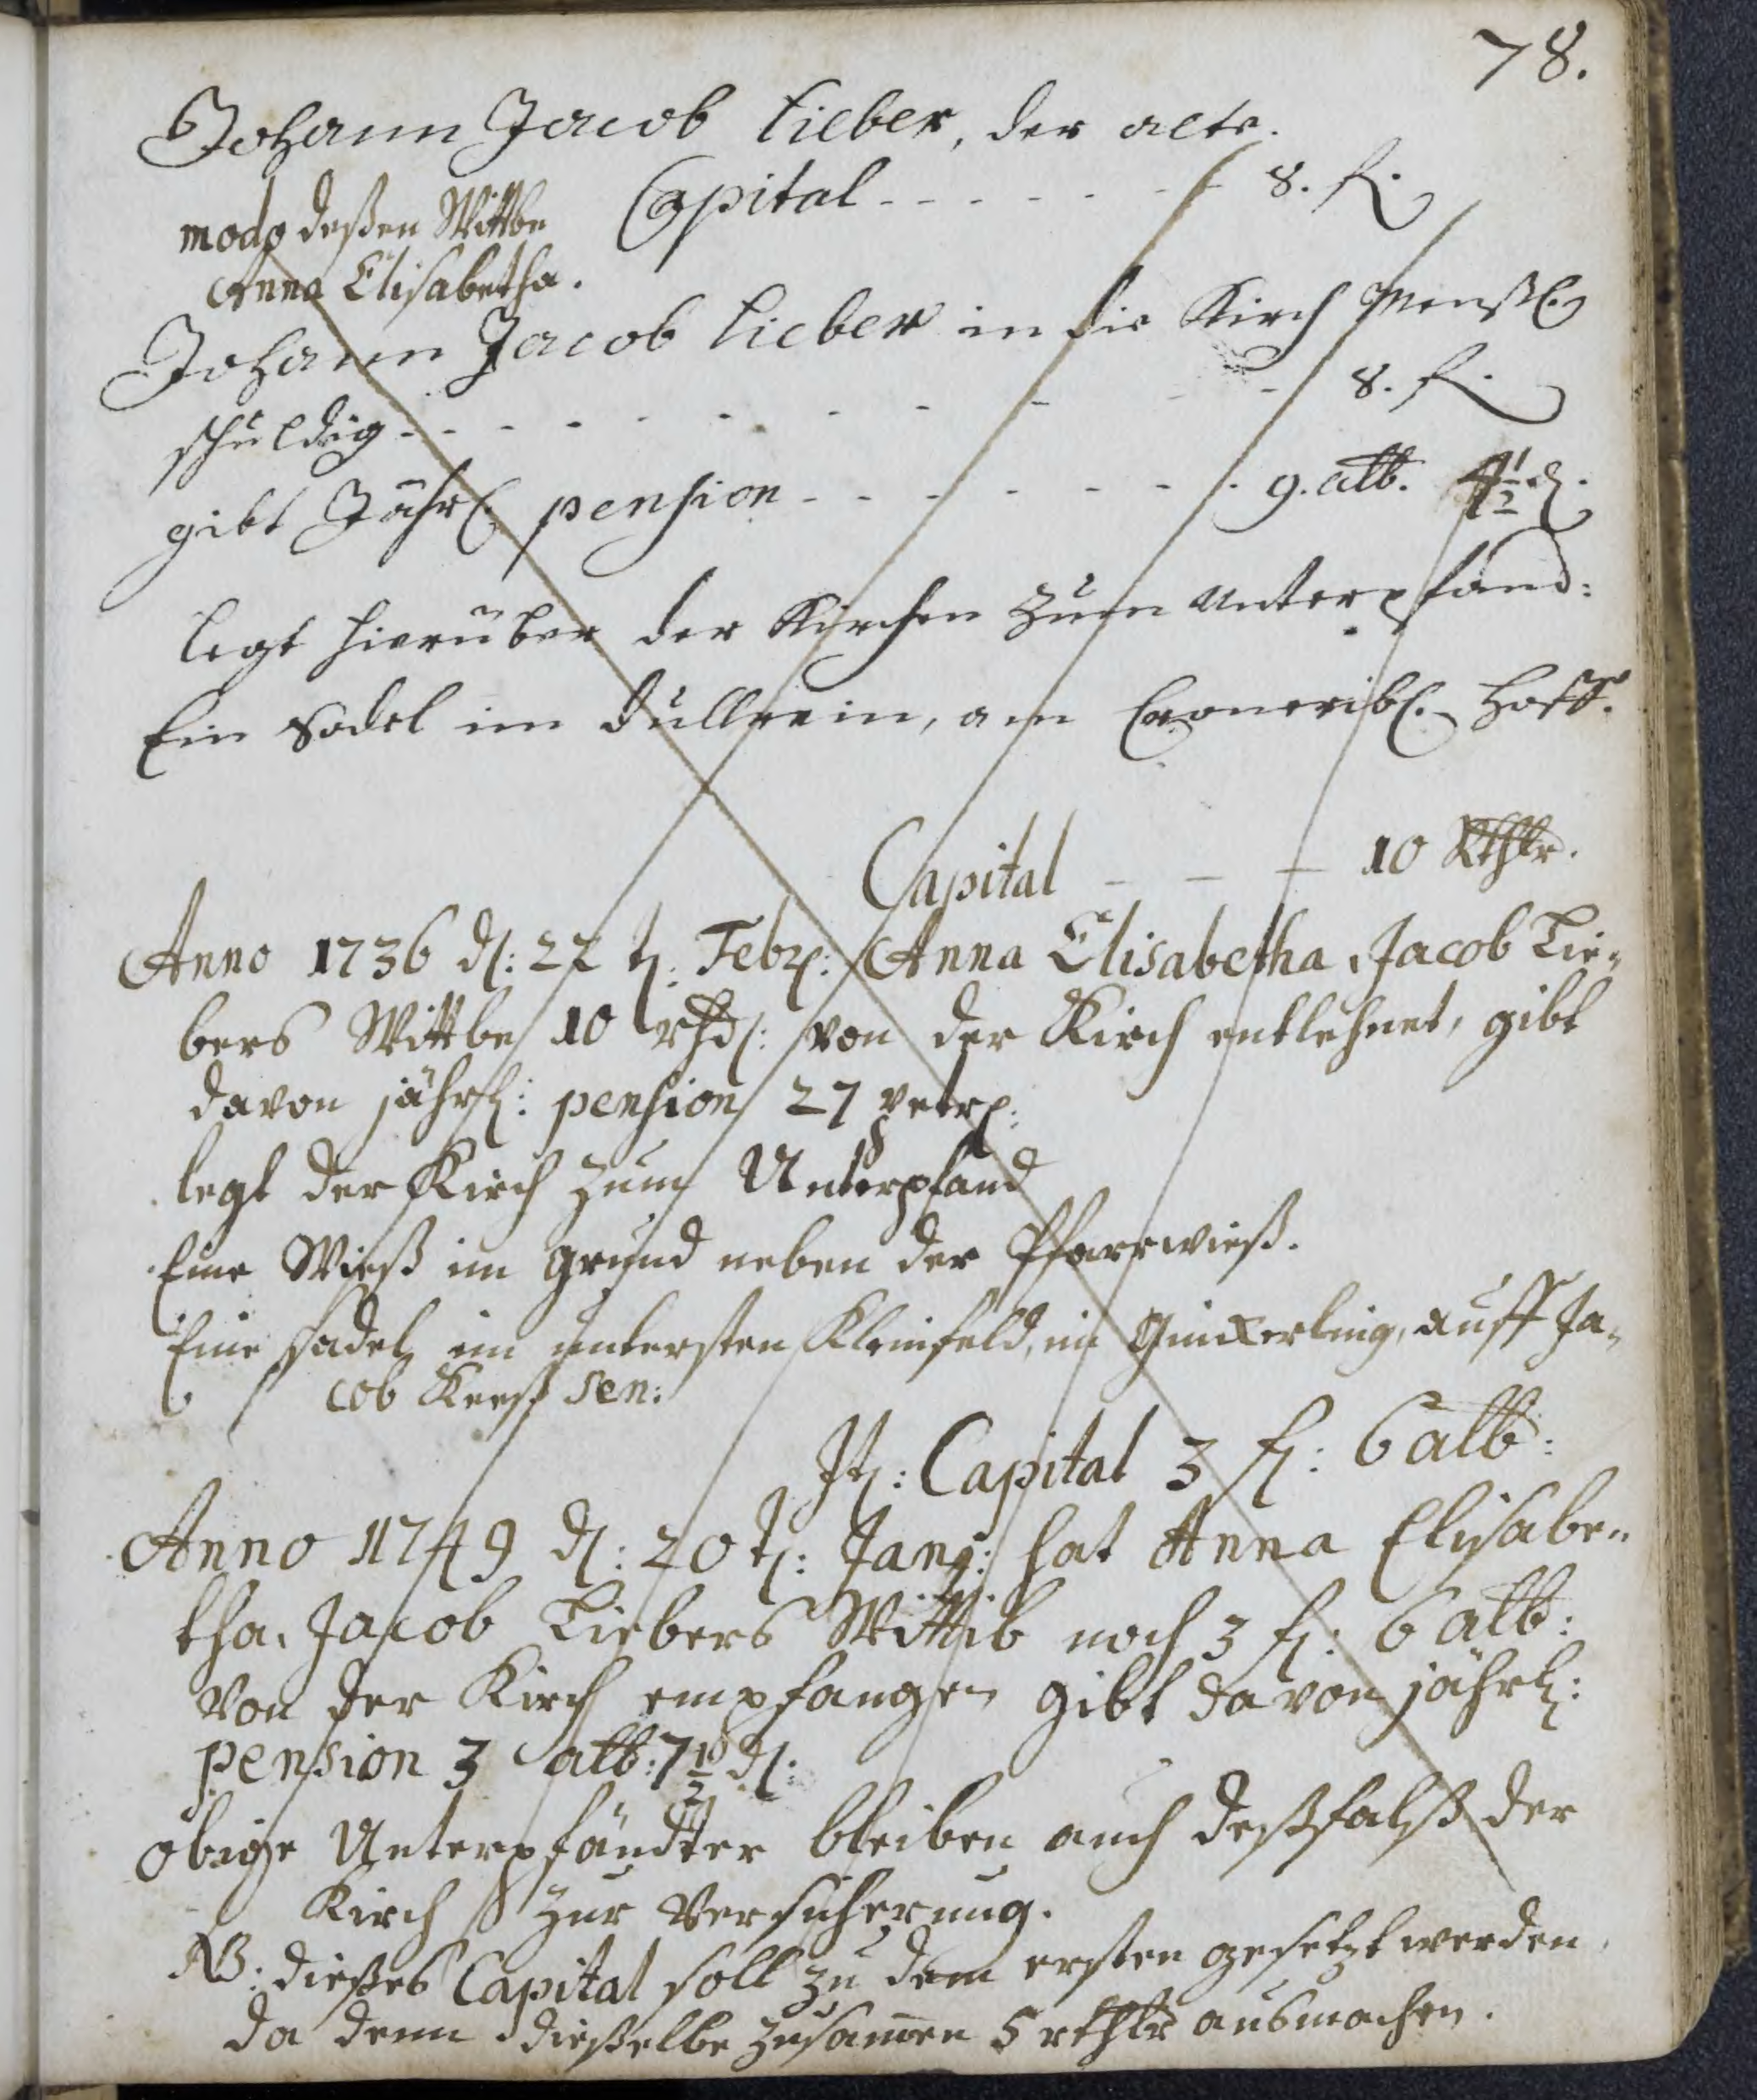 78.
Johann Jacob Lieber, der alte.
Capital - - - - - - 8. fl.
modo deßen Wittbe
Anna Elisabetha.
Johann Jacob Lieber in die Kirch
schuldig - - - - - - - - - 8. fl.
gibt Jährl. pension - - - - - - - 9. alb. 4½ d.
legt hierüber der Kirchen zum Unterpfand:
Ein Sodel im, am Hoff.
Capital - - - 10 Rthlr.
Anno 1736 d: 22 t. Febr: Anna Elisabetha, Jacob Lie-
bers Wittbe 10 von der Kirch entlehnet, gibt
davon jährl: pension 27
legt der Kirch zum Unterpfand
Eine Wieß im grund neben der Pfarrwieß.
Eine sadel im untersten Kleinfeld, im, auff Ja-
cob sen:
It: Capital 3 fl: 6 alb:
Anno 1749 d: 20 t: Jan: hat Anna Elisabe-
tha, Jacob Liebers Wittib noch 3 fl: 6 alb:
von der Kirch empfangen gibt davon jährl:
pension 3 alb: 7½ d:
obige Unterpfändter bleiben auch deßfalß der
Kirch zur Versicherung.
NB: dießes Capital soll zu dem ersten gesetzt werden,
da denn dießelbe zusamen 5 rthlr ausmachen.